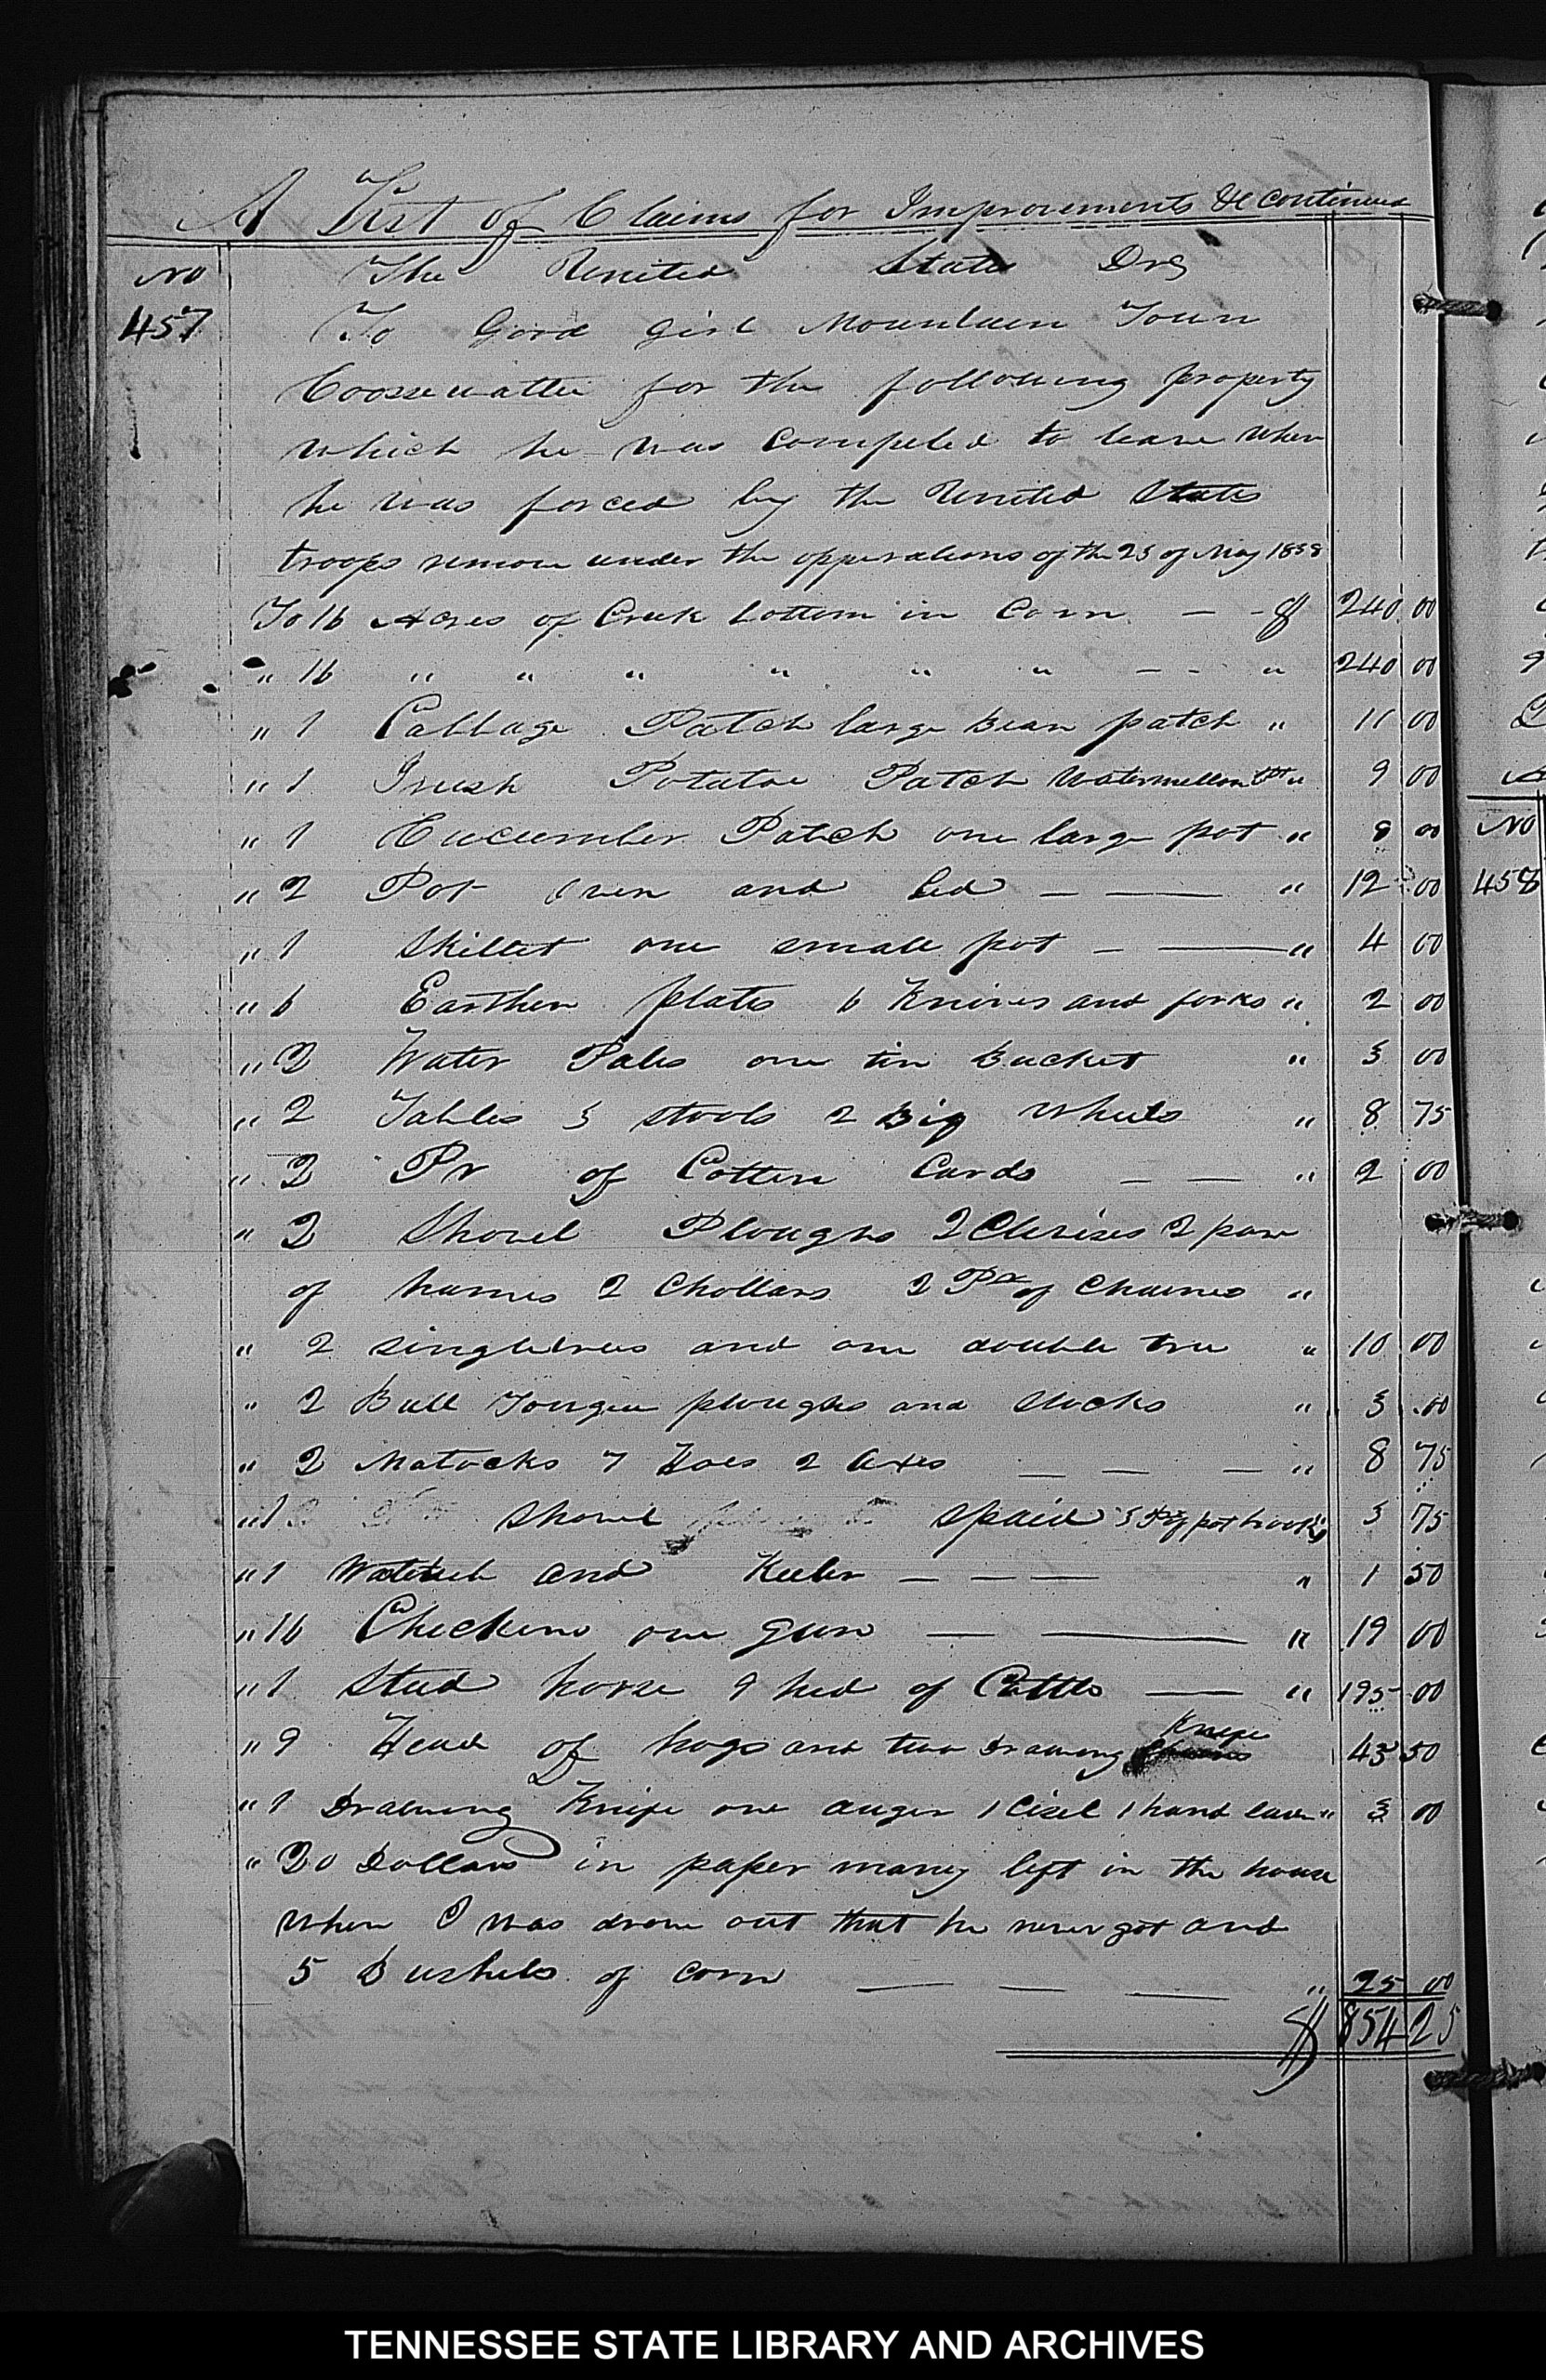 A List of Claims for Improvements &c continued
No The United States Drs
457 To Good Girl Mountain Town
Coossewattee for the following property
which he was Compeled to leave when
he was forced by the United States
troops remove under the opperations of the 23 of May 1838
To 16 Acres of Creek bottom in Corn — - $ 240 00
" 16 " " " " " " — - " 240 00
" 1 Cabbage Patch large Bean patch " 11 00
" 1 Irish Potatoe Patch Watermellon " 9 00
" 1 Cucumber Patch one large pot " 8 00
" 2 Pot Oven and led — — " 12 00
" 1 Skillet one small pot — — " 4 00
" 6 Earthen plates 6 Knives and forks " 2 00
" 2 Water Pales one tin Bucket " 3 00
" 2 Tables 3 stools 2 Big wheels " 8 75
" 2 Pr of Cotten Cards — — " 2 00
" 2 Shovel Ploughs 2 Clevises 2 pare
of hames 2 Chollars 2 Pr of Chaines "
" 2 singletrees and one double tree " 10 00
" 2 Bull Tongue ploughs and Stocks " 3 00
" 2 Matocks 7 Hoes 2 Axes — — — " 8 75
" 1 Shovel Spaid 3 Pr of pot hooks 3 75
" 1 Watertub and Keeler — — — " 1 50
" 16 Checkens one gun — — " 19 00
" 1 Stud horse 9 hed of Cattle — " 195 00
" 9 Head of hogs and two Drawing Knife 43 50
" 1 Drawing Knife one auger 1 Cisel 1 hand saw " 3 00
" 20 Dollars in paper maney left in the house
when I was drove out that he never got and
5 Bushels of corn — — — " 25 00
$ 854 25
No
458
TENNESSEE STATE LIBRARY AND ARCHIVES